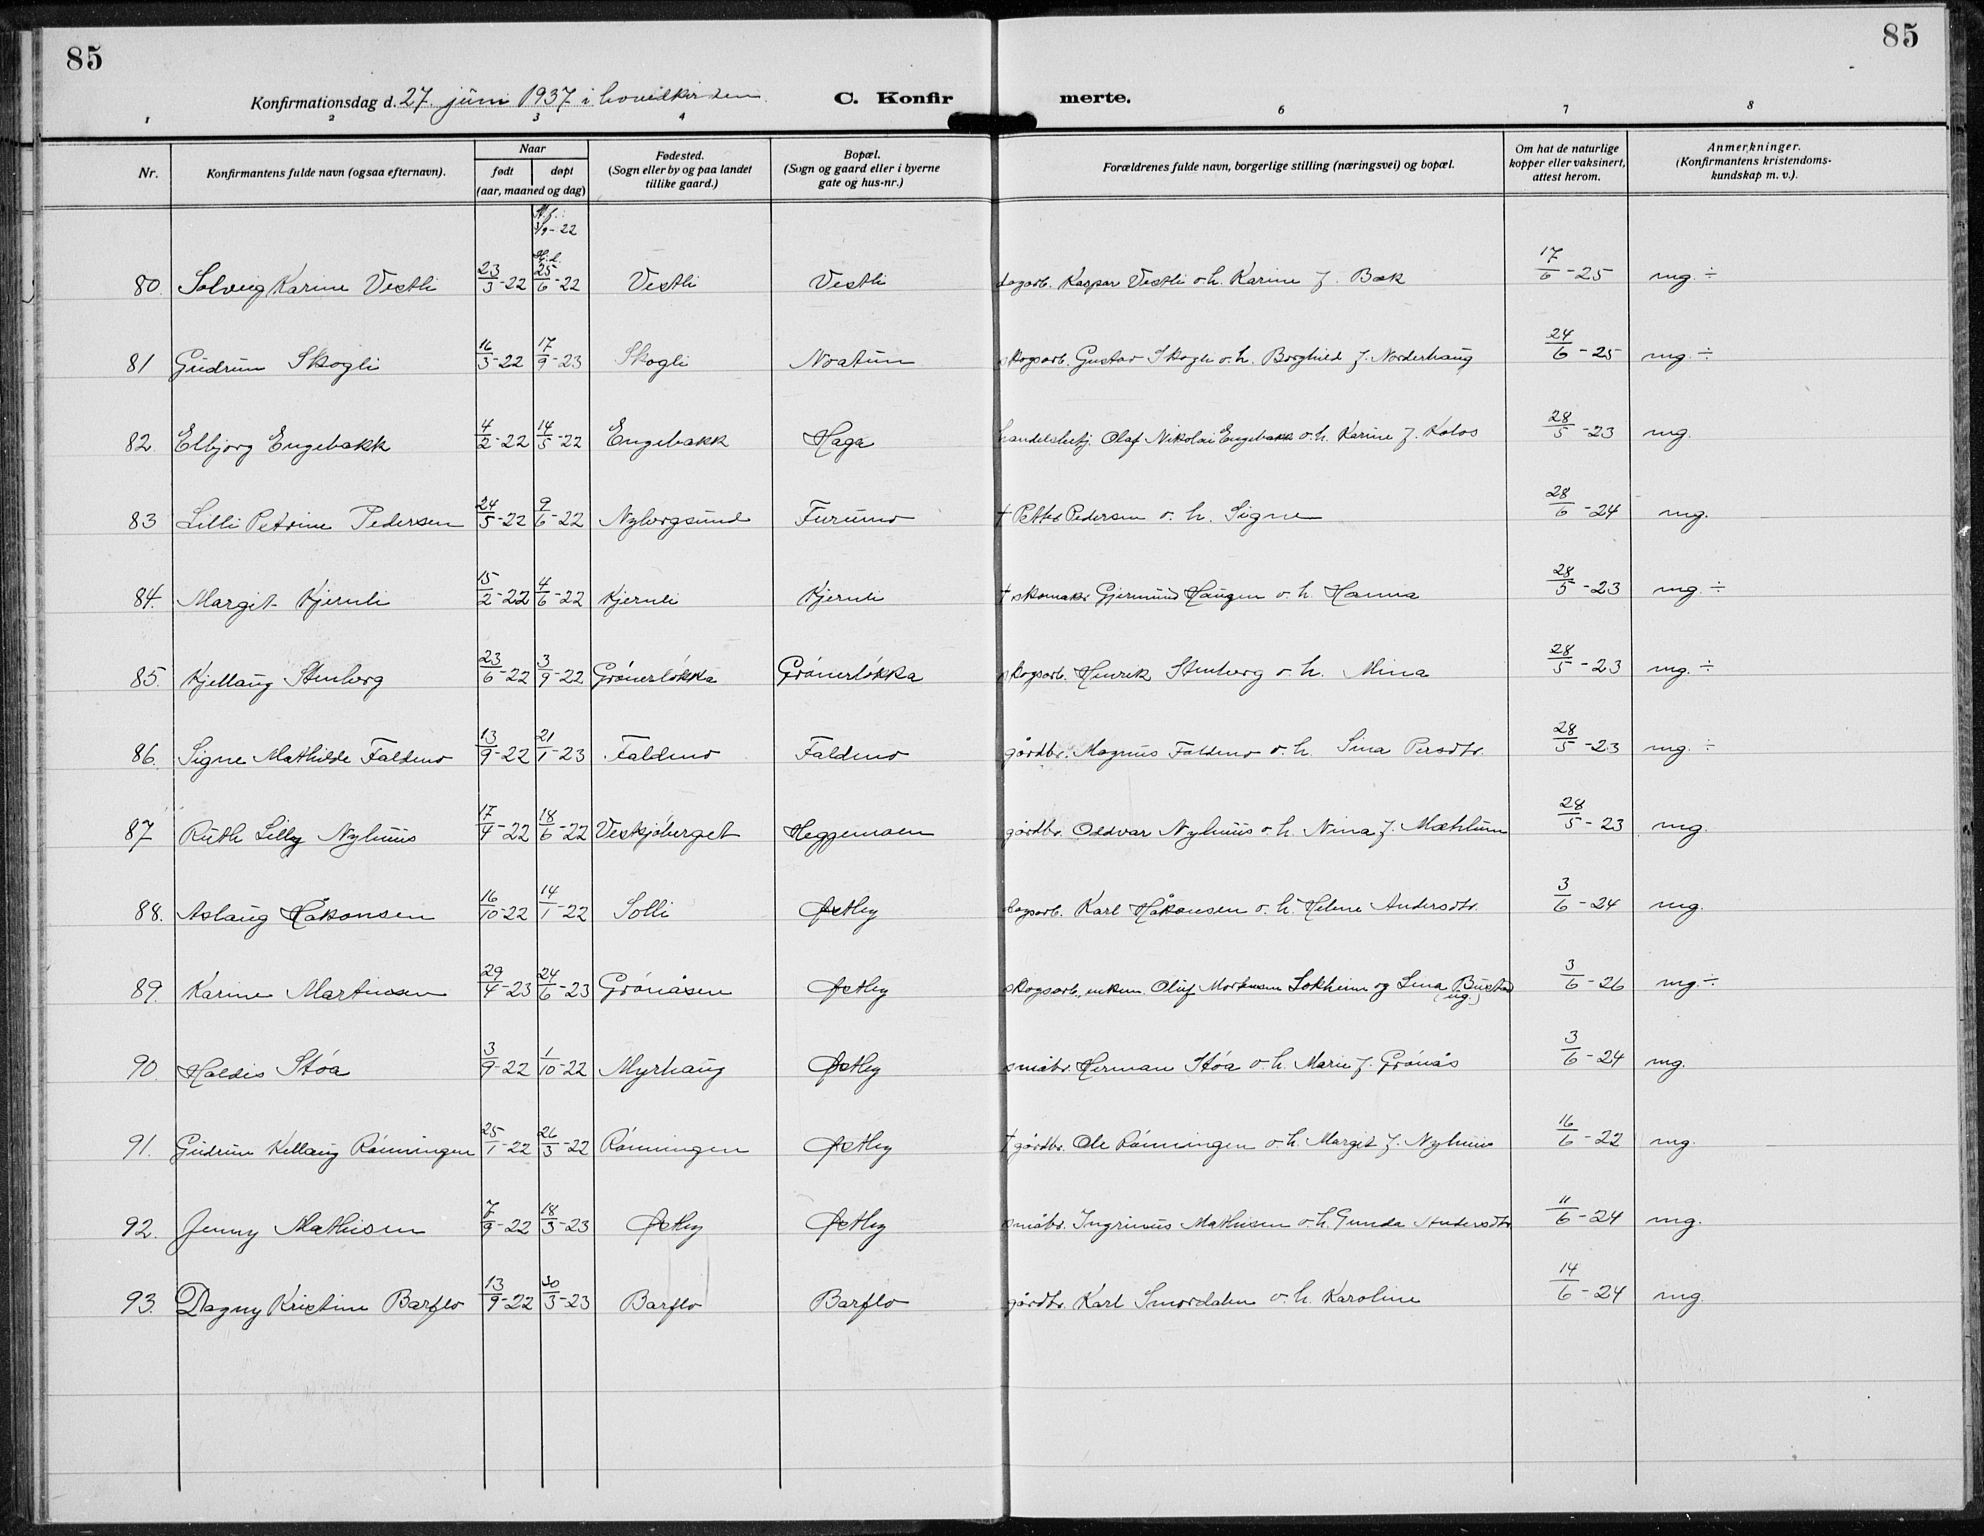 85
85
Konfirmationsdag d. 27. juni 1937 i hovedkirken.
C. Konfir merte.
1 2 3 4 6 7 8
Nr. Konfirmantens fulde navn (ogsaa efternavn). Naar født døpt (aar, maaned og dag) Fødested. (Sogn eller by og paa landet tillike gaard.) Bopæl. (Sogn og gaard eller i byerne gate og hus-nr.) Forældrenes fulde navn, borgerlige stilling (næringsvei) og bopæl. Om hat de naturlige kopper eller vaksinert, attest herom. Anmerkninger. (Konfirmantens kristendomskundskap m. v.).
3/9-22
80. Solveig Karine Vestli 23/3-22 25/6-22 Vestli Vestli dagarb. Kaspar Vestli o. h. Karine f. Bæk 17/6-25 mg. ÷
81 Gudrun Skogli 16/3-22 17/9-23 Skogli Noatun skogsarb. Gustav Skogli o. h. Borghild f. Norderhaug 24/6-25 mg. ÷
82. Elbjørg Engebakk 4/2-22 14/5-22 Engebakk Haga handelsbetj. Olaf Nikolai Engebakk o. h. Karine f. Kolos 28/5-23 mg.
83 Lilli Petrine Pedersen 24/5-22 9/6-22 Nybergsund Furumo † Petter Pedersen o. h. Signe 28/6-24 mg.
84. Margit Kjernli 15/2-22 4/6-22 Kjernli Kjernli † skomaker Gjermund Haugen o. h. Hanna 28/5-23 mg. ÷
85. Kjellaug Stenberg 23/6-22 3/9-22 Grønerløkka Grønerløkka skogsarb. Henrik Stenberg o. h. Mina 28/5-23 mg. ÷
86. Signe Mathilde Faldmo 13/9-22 21/1-23 Faldmo Faldmo gårdbr. Magnus Faldmo o. h. Sina Persdtr. 28/5-23 mg. ÷
87 Ruth Lilly Nyhuus 17/4-22 18/6-22 Vestsjøberget Heggemoen gårdbr. Oddvar Nyhuus o. h. Nina f. Mæhlum 28/5-23 mg.
88. Aslaug Håkonsen 16/10-22 14/1-22 Solli Østby Karl Håkonsen o. h. Helene Andersdtr. 3/6-24 mg.
89. Karine Martinsen 29/4-23 24/6-23 Grønåsen Østby skogsarb. enkem. Oluf Mortensen Sokheim og Lina Bustad (ug.) 3/6-26 mg. ÷
90. Haldis Støa 3/9-22 1/10-22 Myrhaug Østby småbr. Herman Støa o. h. Marie f. Grønås 3/6-24 mg.
91. Gudrun Kellaug Rønningen 25/1-22 26/3-22 Rønningen Østby † gårdbr. Ole Rønningen o. h. Margit f. Nyhuus 16/6-22 mg.
92. Jenny Mathisen 7/9-22 18/3-23 Østby Østby småbr. Ingrimus Mathisen o. h. Gunda Andersdtr 11/6-24 mg.
93. Dagny Kristine Barflo 13/9-22 30/3-23 Barflo Barflo gårdbr. Karl Smordalen o. h. Karoline 14/6-24 mg.